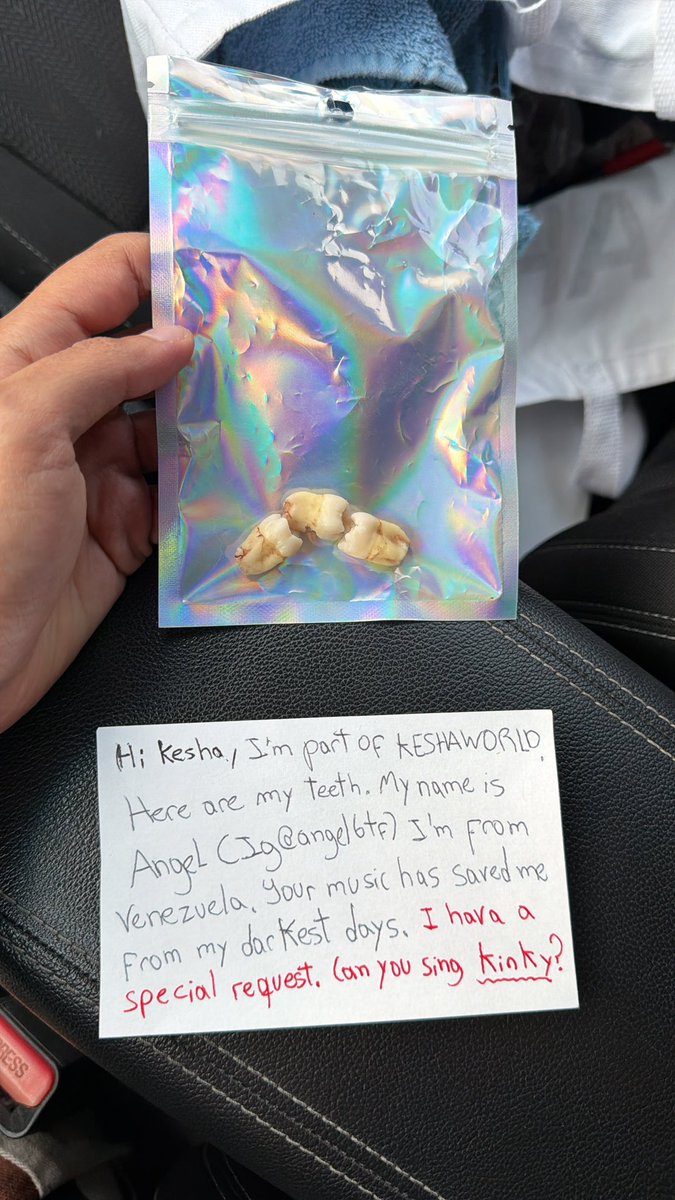 HA
Hi Kesha, I'm part of KESHAWORLD.
Here are my teeth. My name is
Angel (Ig@angel6tf) I'm from
Venezuela. Your music has saved me
from my darkest days. I hava a
special request. Can you sing Kinky?
PRESS